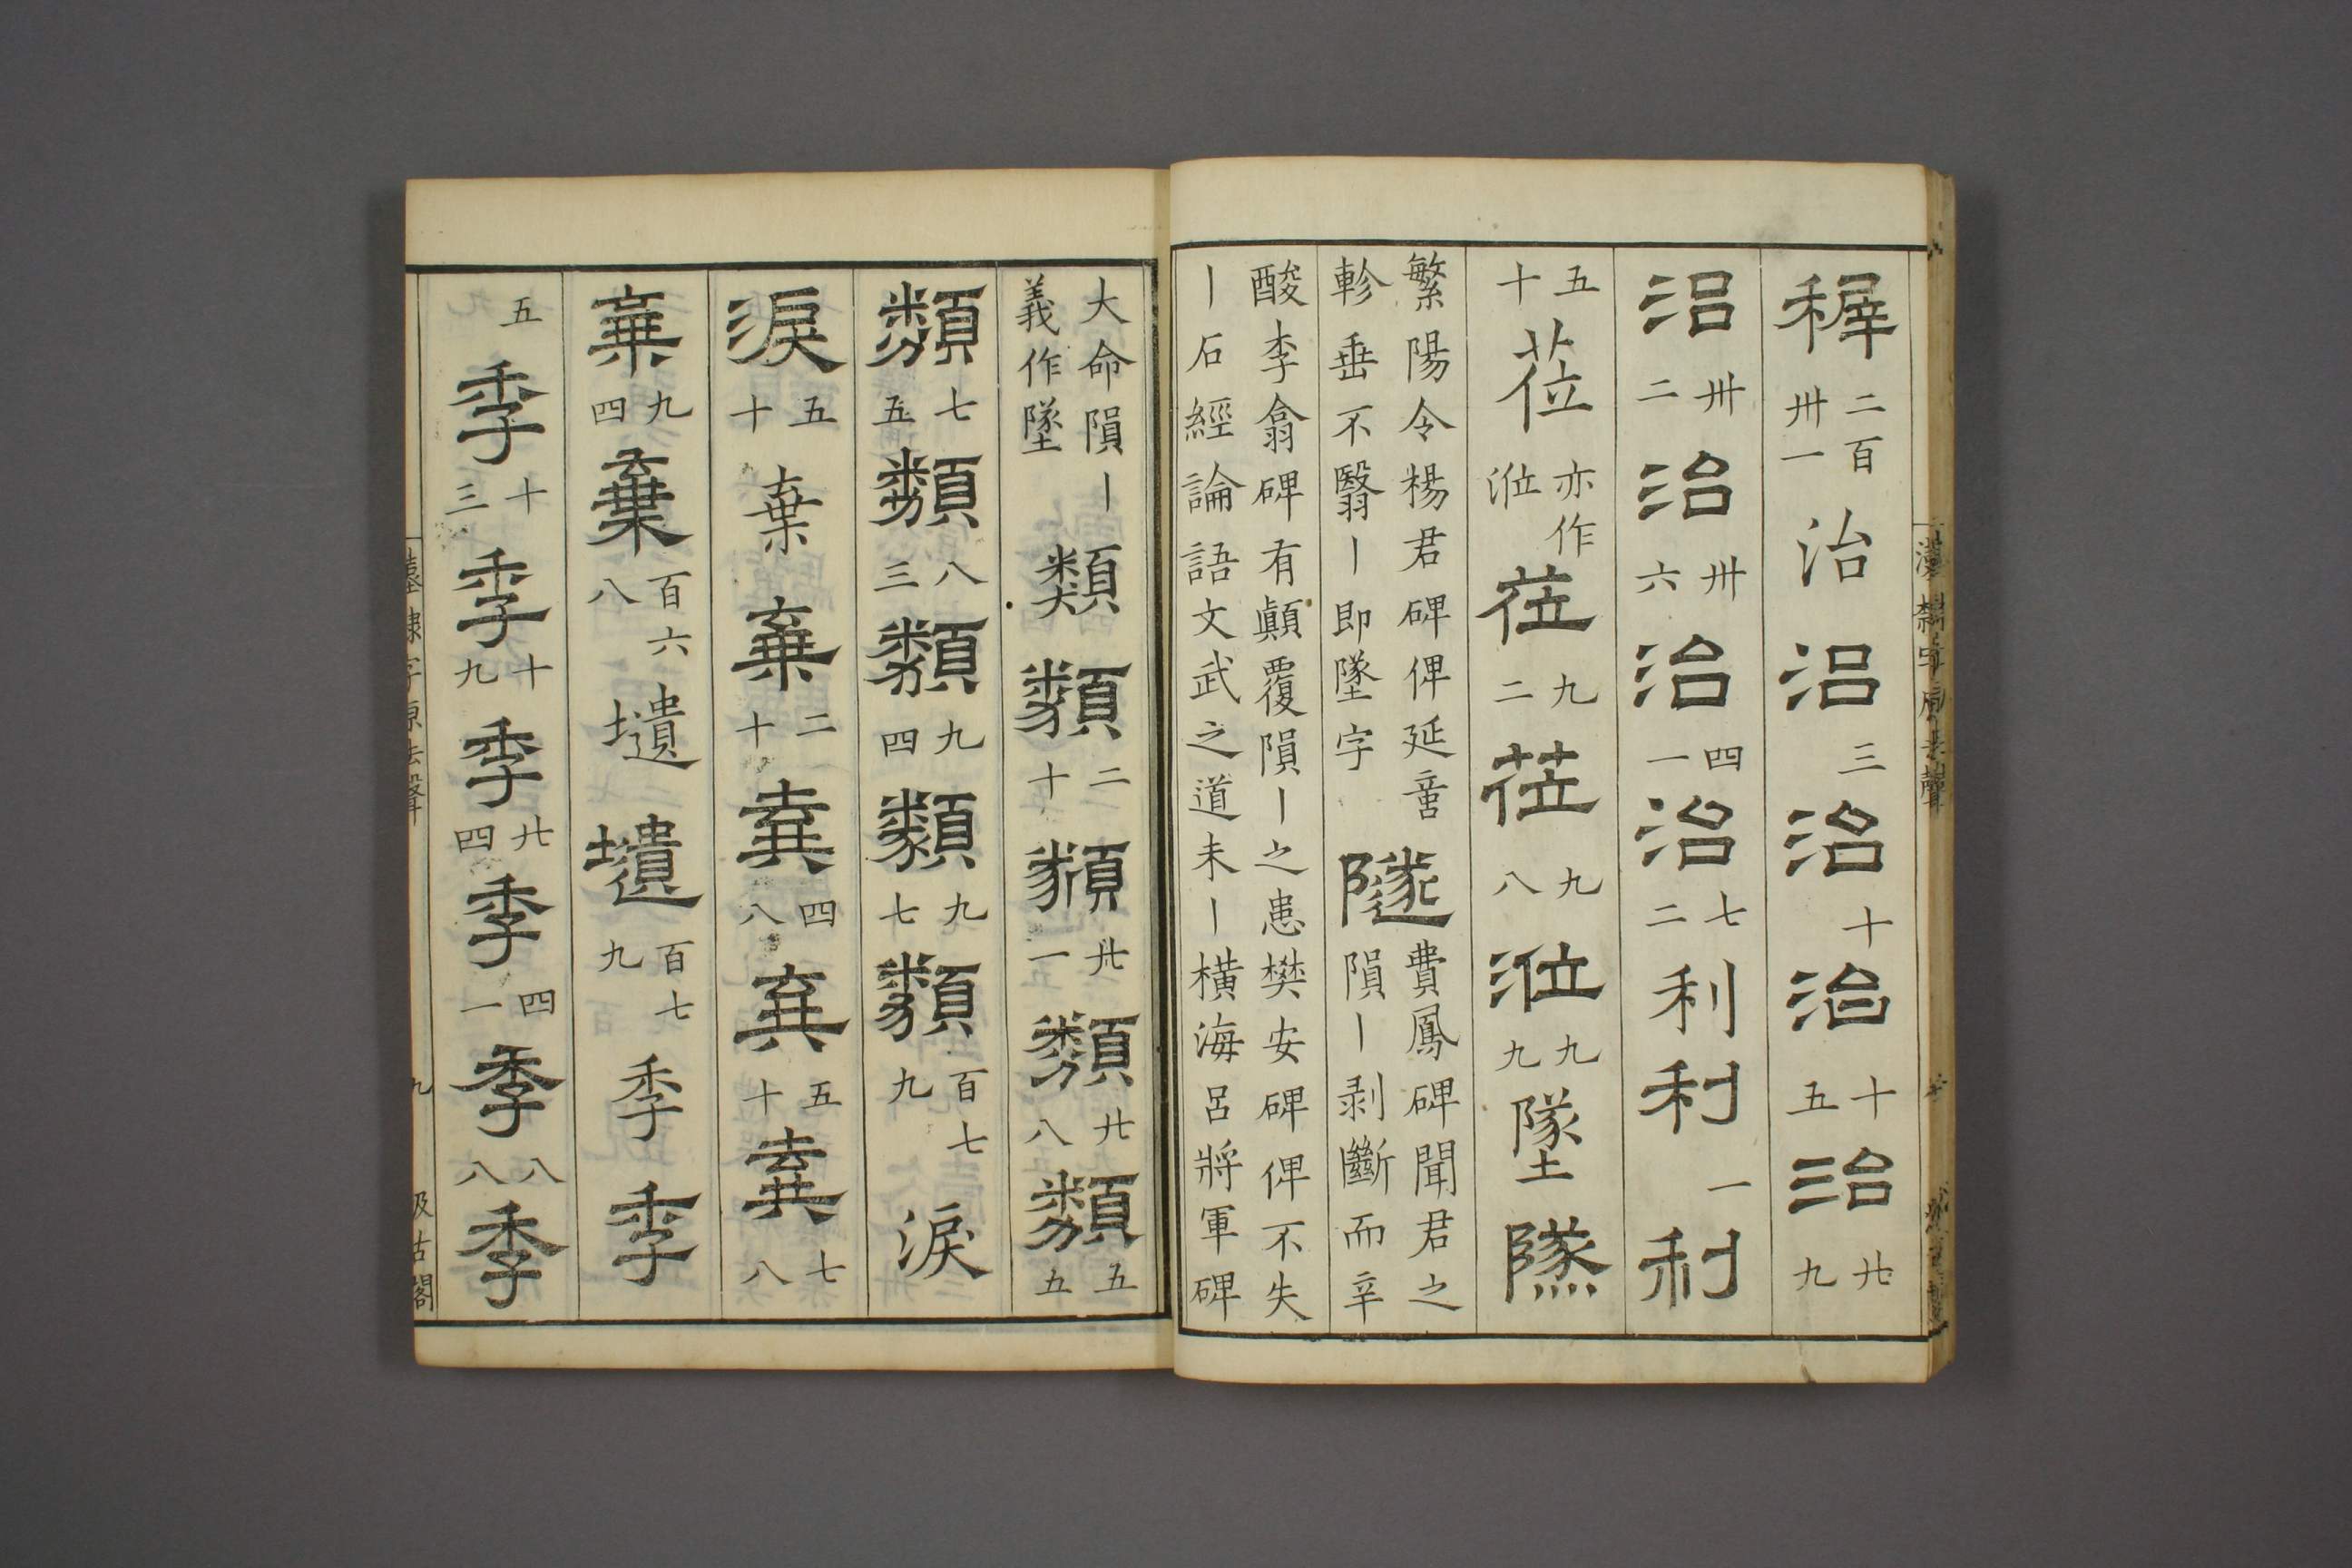 稺 二百卅一 治 治 三 治 十 治 十五 治 廿九
治 卅二 治 卅六 治 四一 治 七二 利 利 一 利
五十 莅 亦作涖 莅 九二 莅 九八 涖 九九 墜 隧
繁陽令楊君碑俾延啻
軫垂不翳丨即墜字 隧 費鳳碑聞君之
隕丨剥斷而辛
酸李翕碑有顛覆隕丨之患樊安碑俾不失
丨石經論語文武之道未丨橫海呂將軍碑
漢隸字原去聲
大命隕丨
義作墜 類 類 二十 類 卅一 類 廿八 類 五五
類 七五 類 八三 類 九四 類 九七 類 百七九 淚
淚 五十 棄 棄 二十 棄 四八 棄 五十 棄 七八
棄 九四 棄 百六八 壝 壝 百七九 季 季
五 季 十三 季 十九 季 廿四 季 四一 季 八八 季
漢隸字原去聲 九 汲古閣